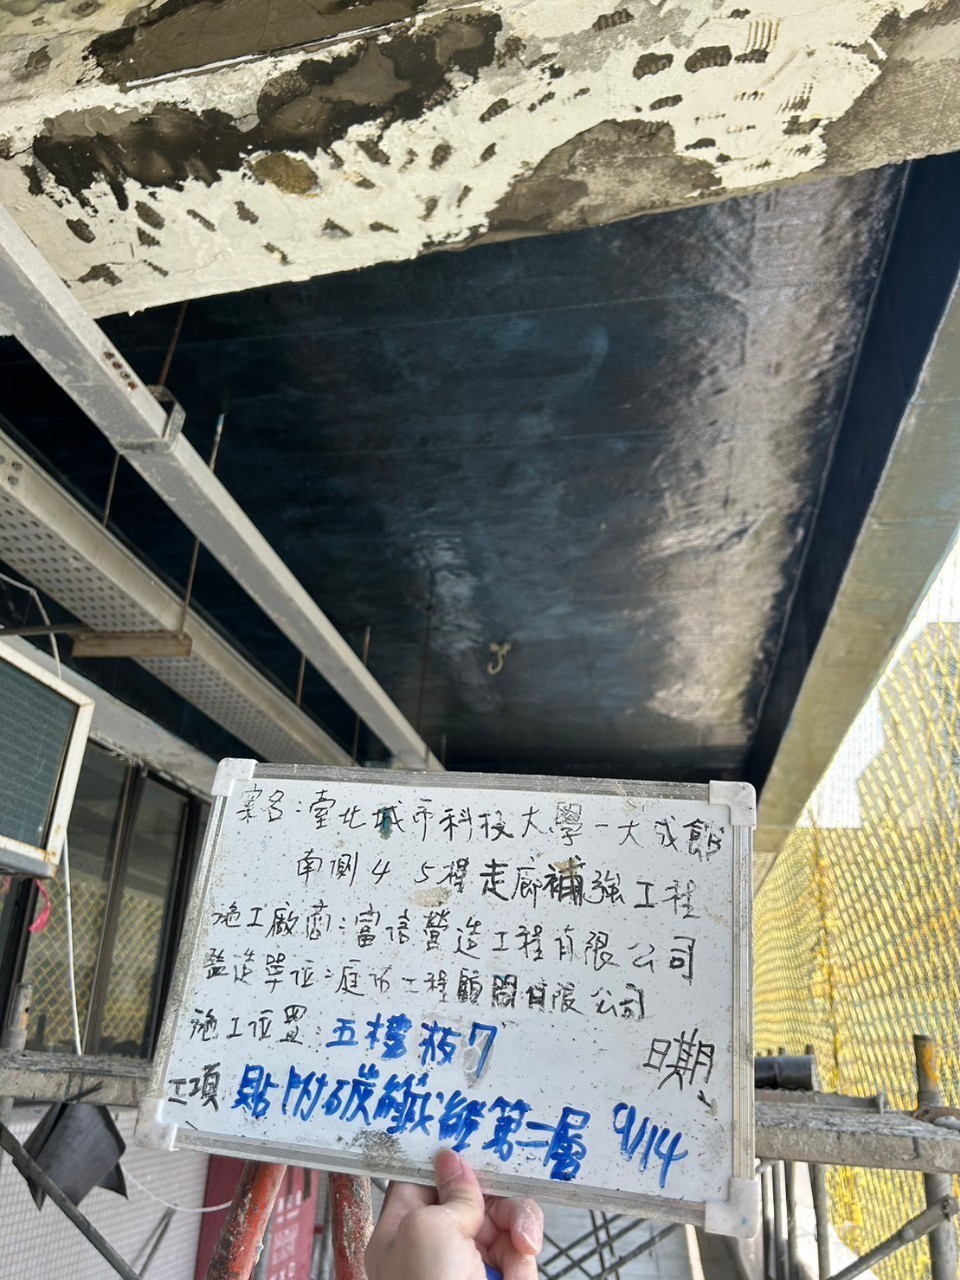 案名:臺北城市科技大學-大成館
南側4 5樓走廊補強工程
施工廠商:富信營造工程有限公司
監造單位:庭	工程顧問有限公司
施工位置:五樓板7
日期
工項 貼附碳纖維第二層 9/14